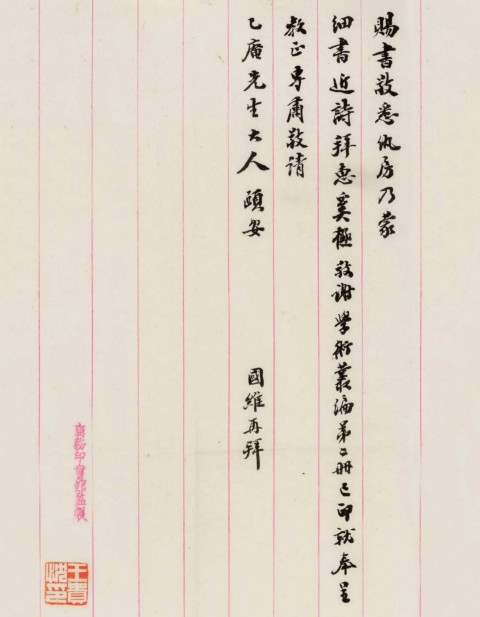 賜書敬悉紈扇乃蒙
細書近詩拜惠奚極敬謝學術叢編第二冊已印就奉呈
教正專肅敬請
乙庵先生大人 頤安
國維再拜
商務印書館監製
王貴忱印